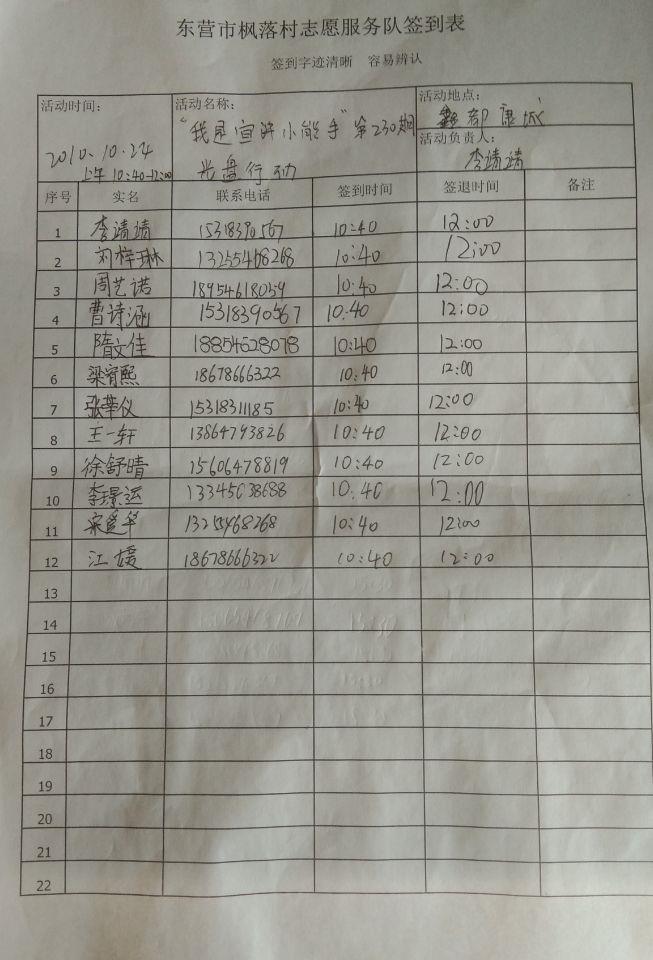 东营市枫落村志愿服务队签到表
签到字迹清晰 容易辨认
活动时间： 2010.10.24 上午 10:40-12:00
活动名称： “我是宣讲小能手”第230期 光盘行动
活动地点： 鑫都康城
活动负责人： 李靖靖
序号 实名 联系电话 签到时间 签退时间 备注
1 李靖靖 15318390567 10:40 12:00
2 刘梓琳 13255468268 10:40 12:00
3 周艺诺 18954618059 10:40 12:00
4 曹诗涵 15318390567 10:40 12:00
5 隋文佳 18854628078 10:40 12:00
6 梁宵熙 18678666322 10:40 12:00
7 张华仪 15318311185 10:40 12:00
8 王一轩 13864793826 10:40 12:00
9 徐舒晴 15606478819 10:40 12:00
10 李璟运 13345038688 10:40 12:00
11 13255468268 10:40 12:00
12 江媛 18678666322 10:40 12:00
13
14
15
16
17
18
19
20
21
22